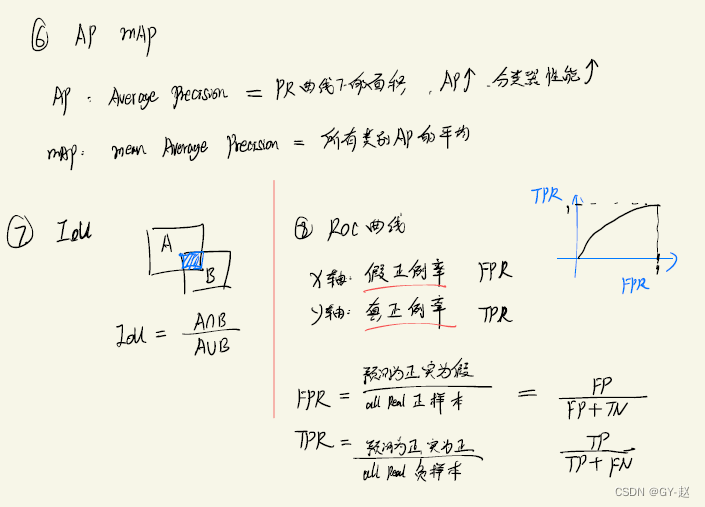 ⑥ AP mAP
AP: Average Precision = PR曲线下的面积, AP↑, 分类器性能↑
mAP: mean Average Precision = 所有类别AP的平均
⑦ IoU
A
B
IoU = A∩B / A∪B
⑧ ROC 曲线
X轴: 假正例率 FPR
y轴: 真正例率 TPR
FPR = 预测为正实为假 / all Real 正样本 = FP / FP+TN
TPR = 预测为正实为正 / all Real 负样本 TP / TP+FN
TPR
1
1
FPR
CSDN @GY-赵